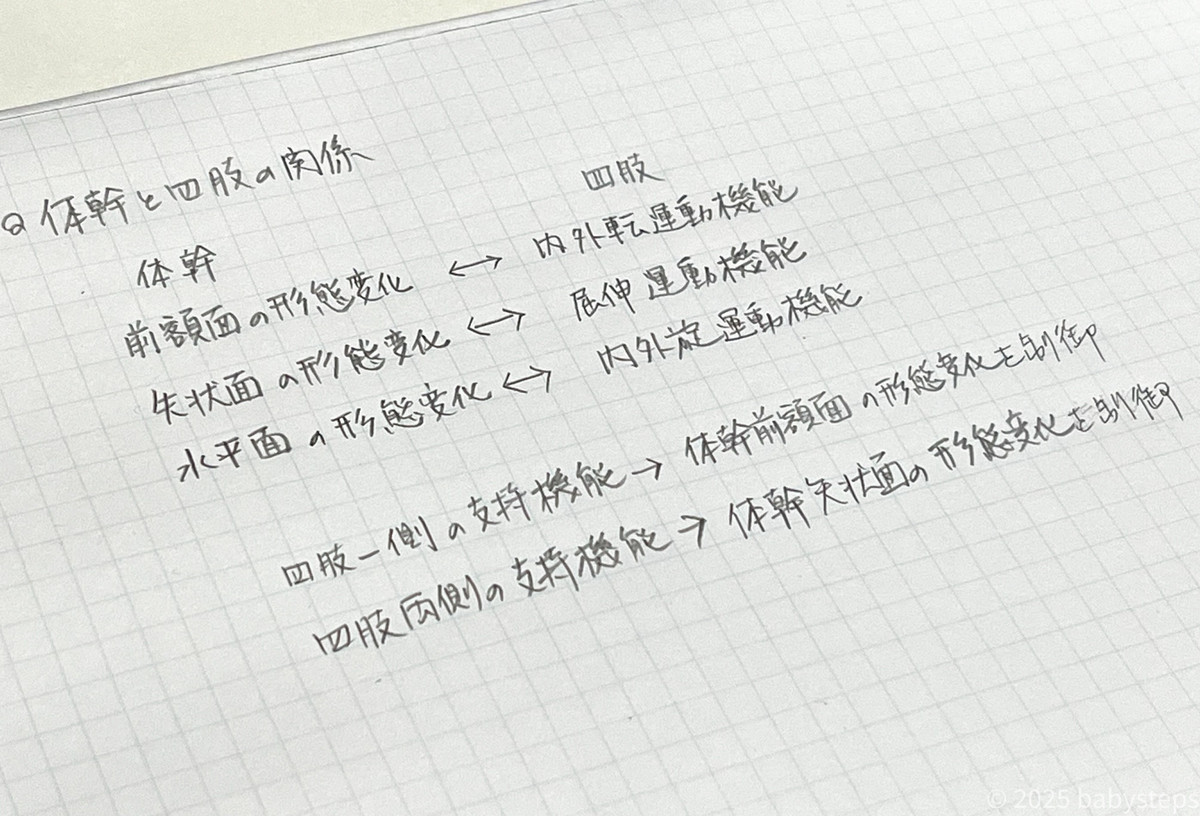 Q 体幹と四肢の関係
体幹 四肢
前額面の形態変化 ↔ 内外転運動機能
矢状面の形態変化 ↔ 屈伸運動機能
水平面の形態変化 ↔ 内外旋運動機能
四肢一側の支持機能 → 体幹前額面の形態変化を制御
四肢両側の支持機能 → 体幹矢状面の形態変化を制御
© 2025 babysteps